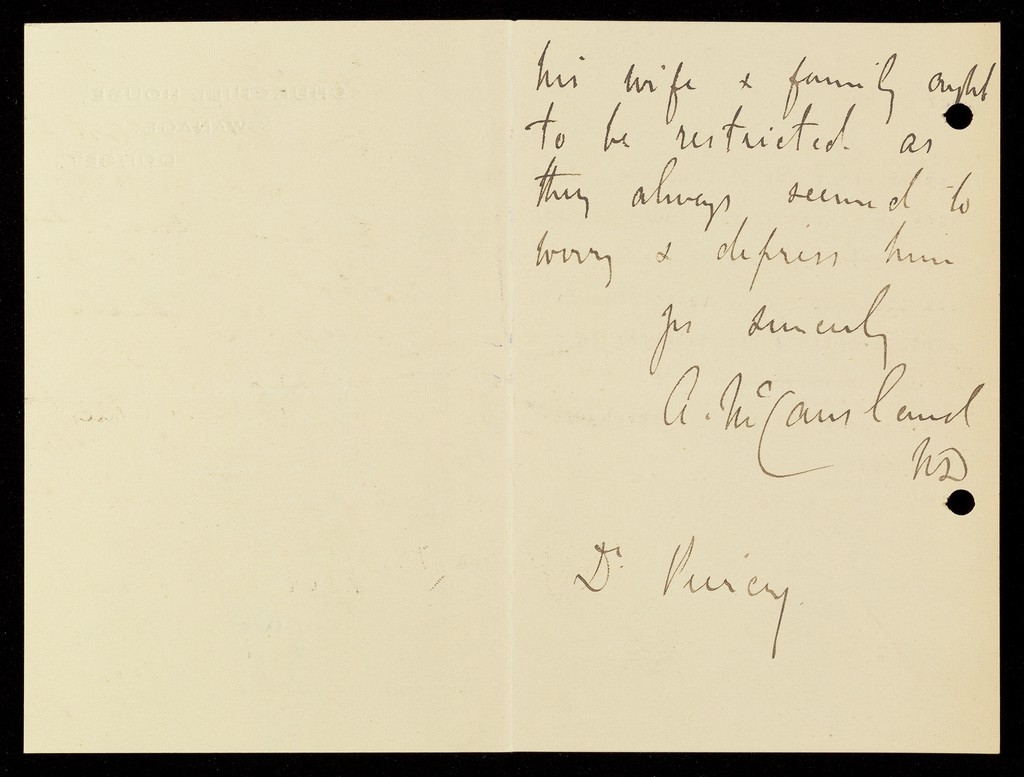 his wife & family ought
to be restricted as
they always seemed to
worry & depress him
yrs sincerely
A. McCausland
MD
Dr.